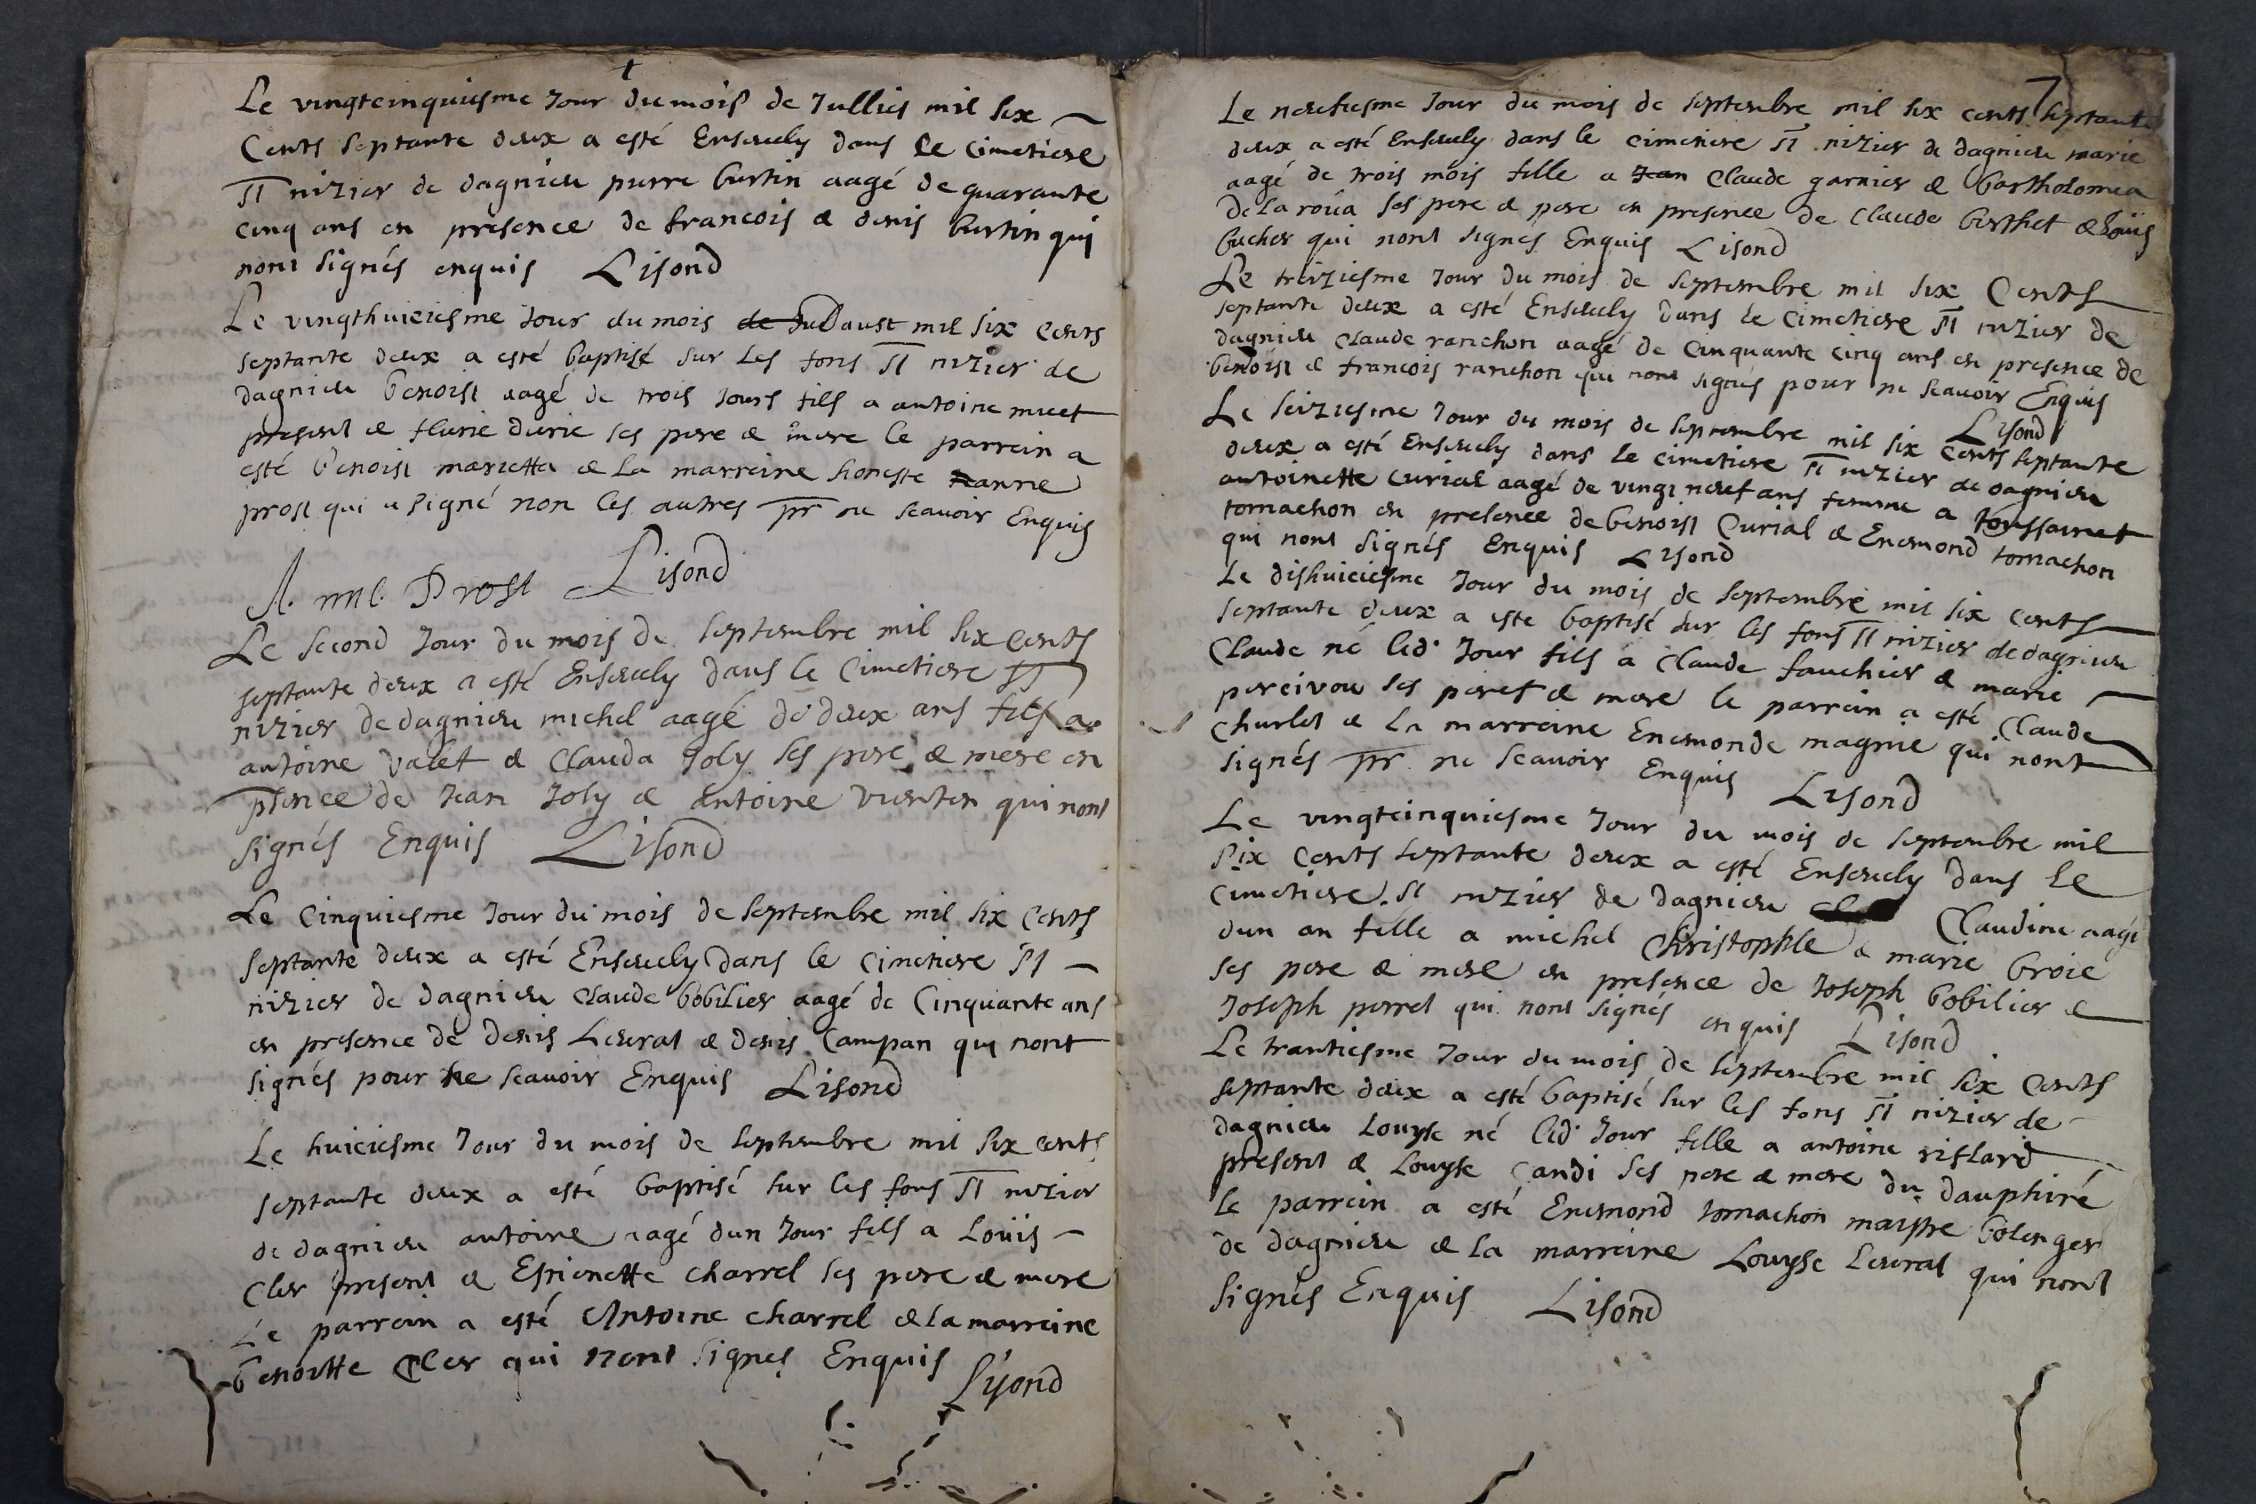 Le vingtcinquiesme Jour du mois de Jullies mil six
Cents septante deux a esté Enseuely dans le cimetiere
St nizier de dagnieu pierre bertin aagé de quarante
cinq ans en presence de francois & denis bertin qui
nont signés enquis Lisond
Le vingthuiciesme Jour du mois de Jul daust mil six cents
septante deux a esté baptisé sur les fons St nizier de
dagnieu benoist aagé de trois Jours fils a antoine muet
present & flurie durie ses pere & mere le parrein a
esté benoist marietta & la marreine honeste anne
prost qui a signé non les autres pr ne scauoir Enquis
A. nne. Prost Lisond
Le second Jour du mois de septembre mil six cents
septante deux a esté Enseuely dans le Cimetiere St
nizier de dagnieu michel aagé de deux ans fils a
antoine valet & Clauda Joly ses pere & mere en
psence de Jean Joly & antoine vienten qui nont
signés Enquis Lisond
Le Cinquiesme Jour du mois de septembre mil six Cents
septante deux a esté Enseuely dans le Cimetiere St
nizier de dagnieu Claude bobilier aagé de Cinquante ans
en presence de denis Leurat & denis Campan qui nont
signés pour ne scauoir Enquis Lisond
Le huiciesme Jour du mois de septembre mil six cents
septante deux a esté baptisé sur les fons St nizier
de dagnieu antoine aagé dun Jour fils a Loüis
Cler present & Estienette charrel ses pere & mere
Le parrein a esté Antoine charrel & la marreine
benoitte Cler qui nont signes Enquis Lisond
7
Le neufiesme Jour du mois de septembre mil six cents septante
deux a esté Enseuely dans le cimetiere St nizier de dagnieu marie
aagé de trois mois fille a Jan Claude garnier & bartholomea
De la roüa ses pere & pere en presence de Claude berthet & Loüis
bucher qui nont signés Enquis Lisond
Le treiziesme Jour du mois de septembre mil six Cents
septante deux a esté Enseuely dans le cimetiere St nizier de
dagnieu Claude ranchon aagé de Cinquante cinq ans en presence de
benoist & francois ranchon qui nont signés pour ne scauoir Enquis
Lisond
Le seiziesme Jour du mois de septembre mil six Cents septante
deux a esté Enseuely dans le cimetiere St nizier de dagnieu
antoinette Curial aagé de vingt neuf ans femme a toussainct
tomachon en presence de benoist Curial & Enemond tomachon
qui nont signés Enquis Lisond
Le dishuiciesme Jour du mois de septembre mil six cents
septante deux a este baptisé sur les fons St nizier de dagnieu
Claude né led. Jour fils a Claude fauchier & marie
perceivou ses peres & mere le parrein a esté Claude
Charlet & La marreine Enemonde magnie qui nont
signés pr ne scauoir Enquis Lisond
Le vingtcinquiesme Jour du mois de septembre mil
six Cents septante deux a esté Enseuely dans le
Cimetiere St nizier de dagnieu Claudine aagé
dun an fille a michel Christophle & marie broie
ses pere & mere en presence de Joseph bobilier &
Joseph perret qui nont signés enquis Lisond
Le trantiesme Jour du mois de septembre mil six Cents
septante deux a esté baptisé sur les fons St nizier de
dagnieu Louyse né led. Jour fille a antoine riflard
present & Louyse Candi ses pere & mere du dauphiné
le parrein a esté Enemond tomachon maistre bolenger
de dagnieu & la marreine Louyse Leurat qui nont
signés Enquis Lisond